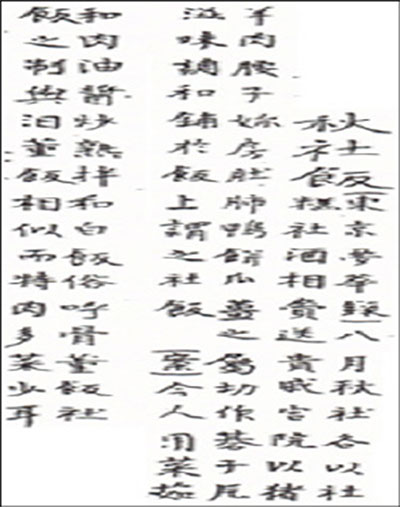 秋社飯
東京夢華錄八月秋社各以社
糕社酒相賫送貴戚宮院以猪
羊肉腰子妳房肚肺鴨餅瓜薑之屬切作棊子片
滋味調和鋪於飯上謂之社飯案今人用菜茹
和肉油醬炒熟拌和白飯俗呼骨董飯社
飯之制與汨董飯相似而特肉多菜少耳